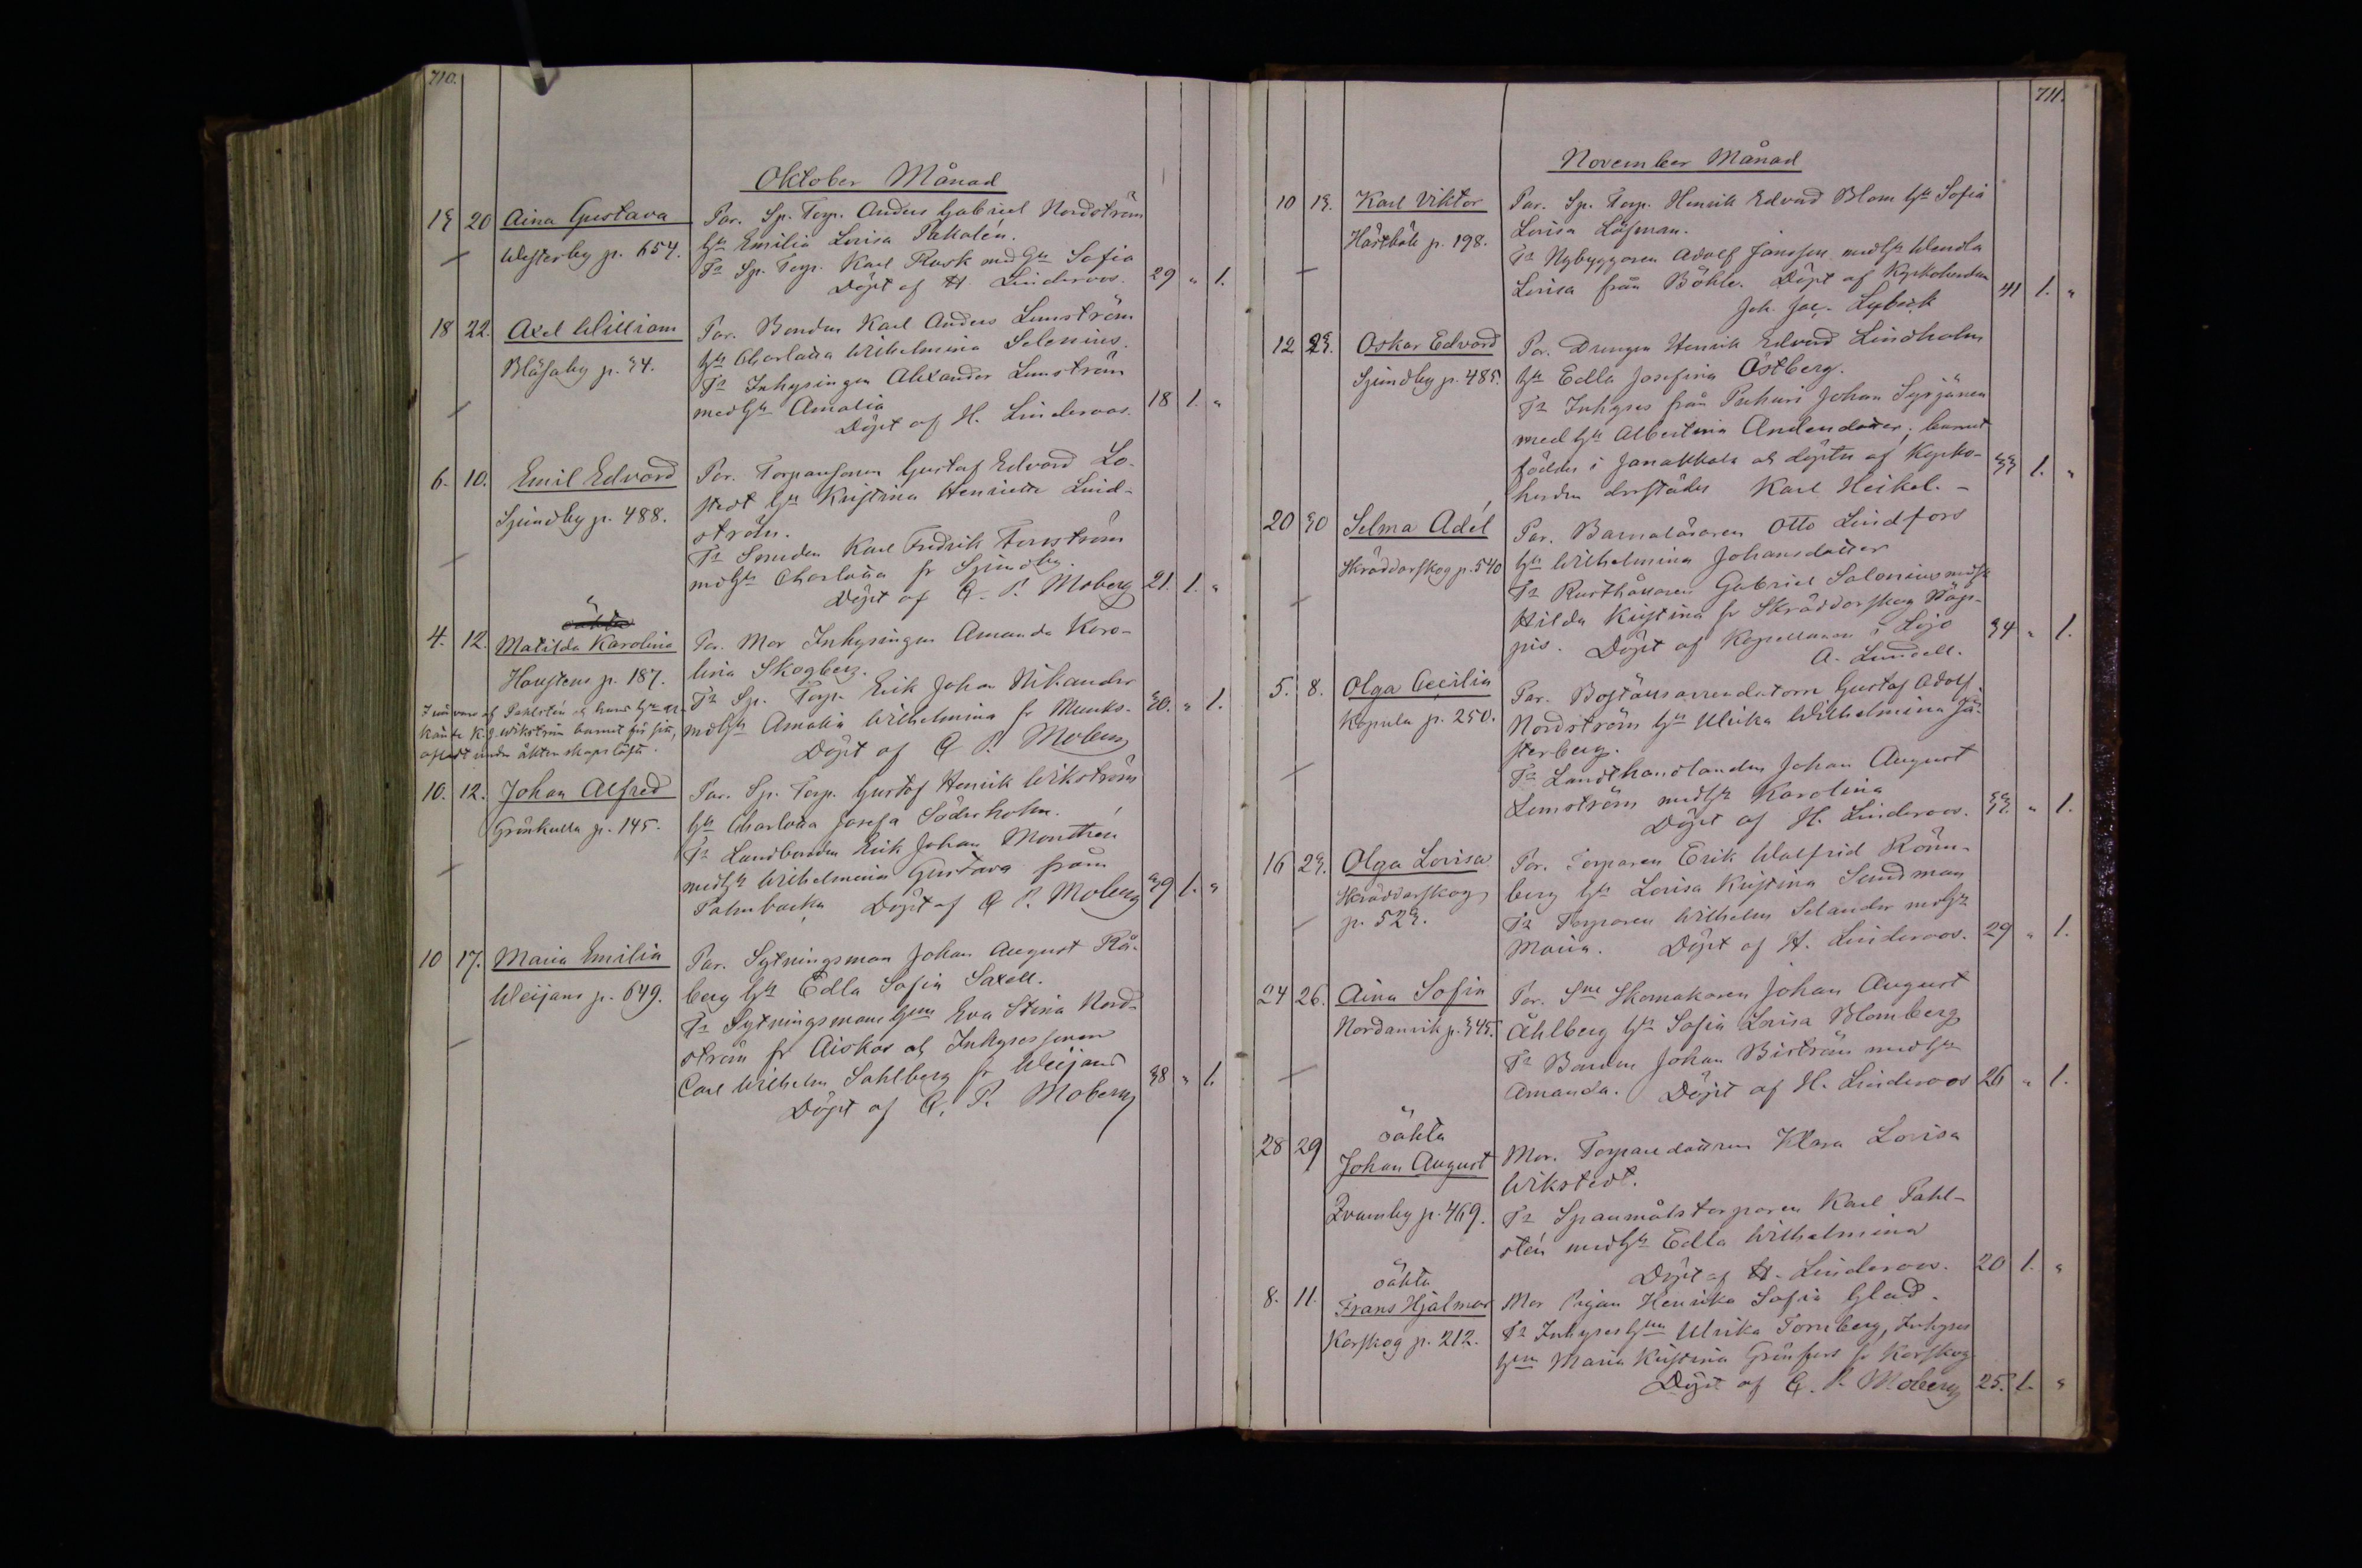 710.
Oktober Månad
13 20 Aina Gustava Par. Sp. Torp. Anders Gabriel Nordström
Westerby p. 654. h:u Emilia Lovisa Pakalén.
Tr Sp. Torp. Karl Rosk med h:u Sofia
Döpt af H. Linderoos. 29 " 1.
18 22. Axel William Par. Bonden Karl Anders Lemström
Blåsaby p. 34. h:u Charlotta Wilhelmina Selenius.
Tr Inhysingen Alexander Lemström
med h:u Amalia
Döpt af H. Linderoos. 18 1. "
6. 10. Emil Edvard Par. Torparsonen Gustaf Edvard Lo-
Sjundby p. 488. stedt h:u Kristina Henrietta Lind-
ström.
Tr Smeden Karl Fredrik Fernström
med h:u Charlotta fr Sjundby.
Döpt af A. P. Moberg 21. 1. "
4. 12. Matilda Karolina Par. Mor Inhysingen Amanda Karo-
p. 187. lina Skogberg.
Tr Sp. Torp. Erik Johan Nikander
med h:u Amalia Wilhelmina fr Munks- 30. " 1.
Döpt af A. P. Moberg
10. 12. Johan Alfred Par. Sp. Torp. Gustaf Henrik Wikström
Grönkulla p. 145. h:u Charlotta Josefa Söderholm.
Tr Landbonden Erik Johan Monthén
med h:u Wilhelmina Gustava från
Palmbacka Döpt af A. P. Moberg 39 1. "
10 17. Maria Emilia Par. Sytningsman Johan August Rå-
Weijans p. 649. berg h:u Edla Sofia Saxell.
Tr Sytningsmans h:un Eva Stina Nord-
ström fr Aiskos och Inhysessonen
Carl Wilhelm Sahlberg fr Weijans 38 " 1.
Döpt af A. P. Moberg
711.
November Månad
10 13. Karl Viktor Par. Sp. Torp. Henrik Edvard Blom h:u Sofia
Hästböle p. 198. Lovisa Löfman.
Tr Nybyggaren Adolf Jansson med h:u Wendla
Lovisa från Böhle. Döpt af Kyrkoherden 41 1. "
Joh. Jac. Lybeck
12 23. Oskar Edvard Par. Drengen Henrik Edvard Lindholm
Sjundby p. 485. h:u Edla Josefina Östberg.
Tr Inhyses från Puhari Johan Syrjänen
med h:u Albertina Andersdotter; barnet
föddes i Janakkala och döptes af Kyrko- 33 1. "
herden derstädes Karl Heikel. –
20 30 Selma Adél Par. Barnaläraren Otto Lindfors
Skräddarskog p. 540 h:u Wilhelmina Johansdotter
Tr Rusthållaren Gabriel Salonius med h:u
Hilda Kristina fr Skräddarskog Näp-
pis. Döpt af Kapellanen i Lojo 34 " 1.
A. Lundell.
5. 8. Olga Cecilia Par. Boställsarrendatorn Gustaf Adolf
Kopula p. 250. Nordström h:u Ulrika Wilhelmina Fä-
sterberg.
Tr Landthandlanden Johan August
Lemström med h:u Karolina
Döpt af H. Linderoos. 33. " 1.
16 23. Olga Lovisa Par. Torparen Erik Walfrid Rönn-
Skräddarskog berg h:u Lovisa Kristina Sundman
p. 523. Tr Torparen Wilhelm Selander med h:u
Maria. Döpt af H. Linderoos. 29 " 1.
24 26. Aina Sofia Par. Sne Skomakaren Johan August
Nordanvik p. 345. Åhlberg h:u Sofia Lovisa Blomberg
Tr Bonden Johan Biström med h:u
Amanda. Döpt af H. Linderoos 26 " 1.
oäkta
28 29 Johan August Mor. Torparedottren Klara Lovisa
Wikstedt.
p. 469. Tr Spanmålstorparen Karl Pahl-
stén med h:u Edla Wilhelmina
Döpt af H. Linderoos. 20 1. "
oäkta
8. 11. Frans Hjalmar Mor Pigan Henrika Sofia Glad.
Korskog p. 212. Tr Inhyses h:un Ulrika Tornberg, Inhyses
h:un Maria Kristina Grönfors fr Korskog
Döpt af A. P. Moberg 25. 1. "